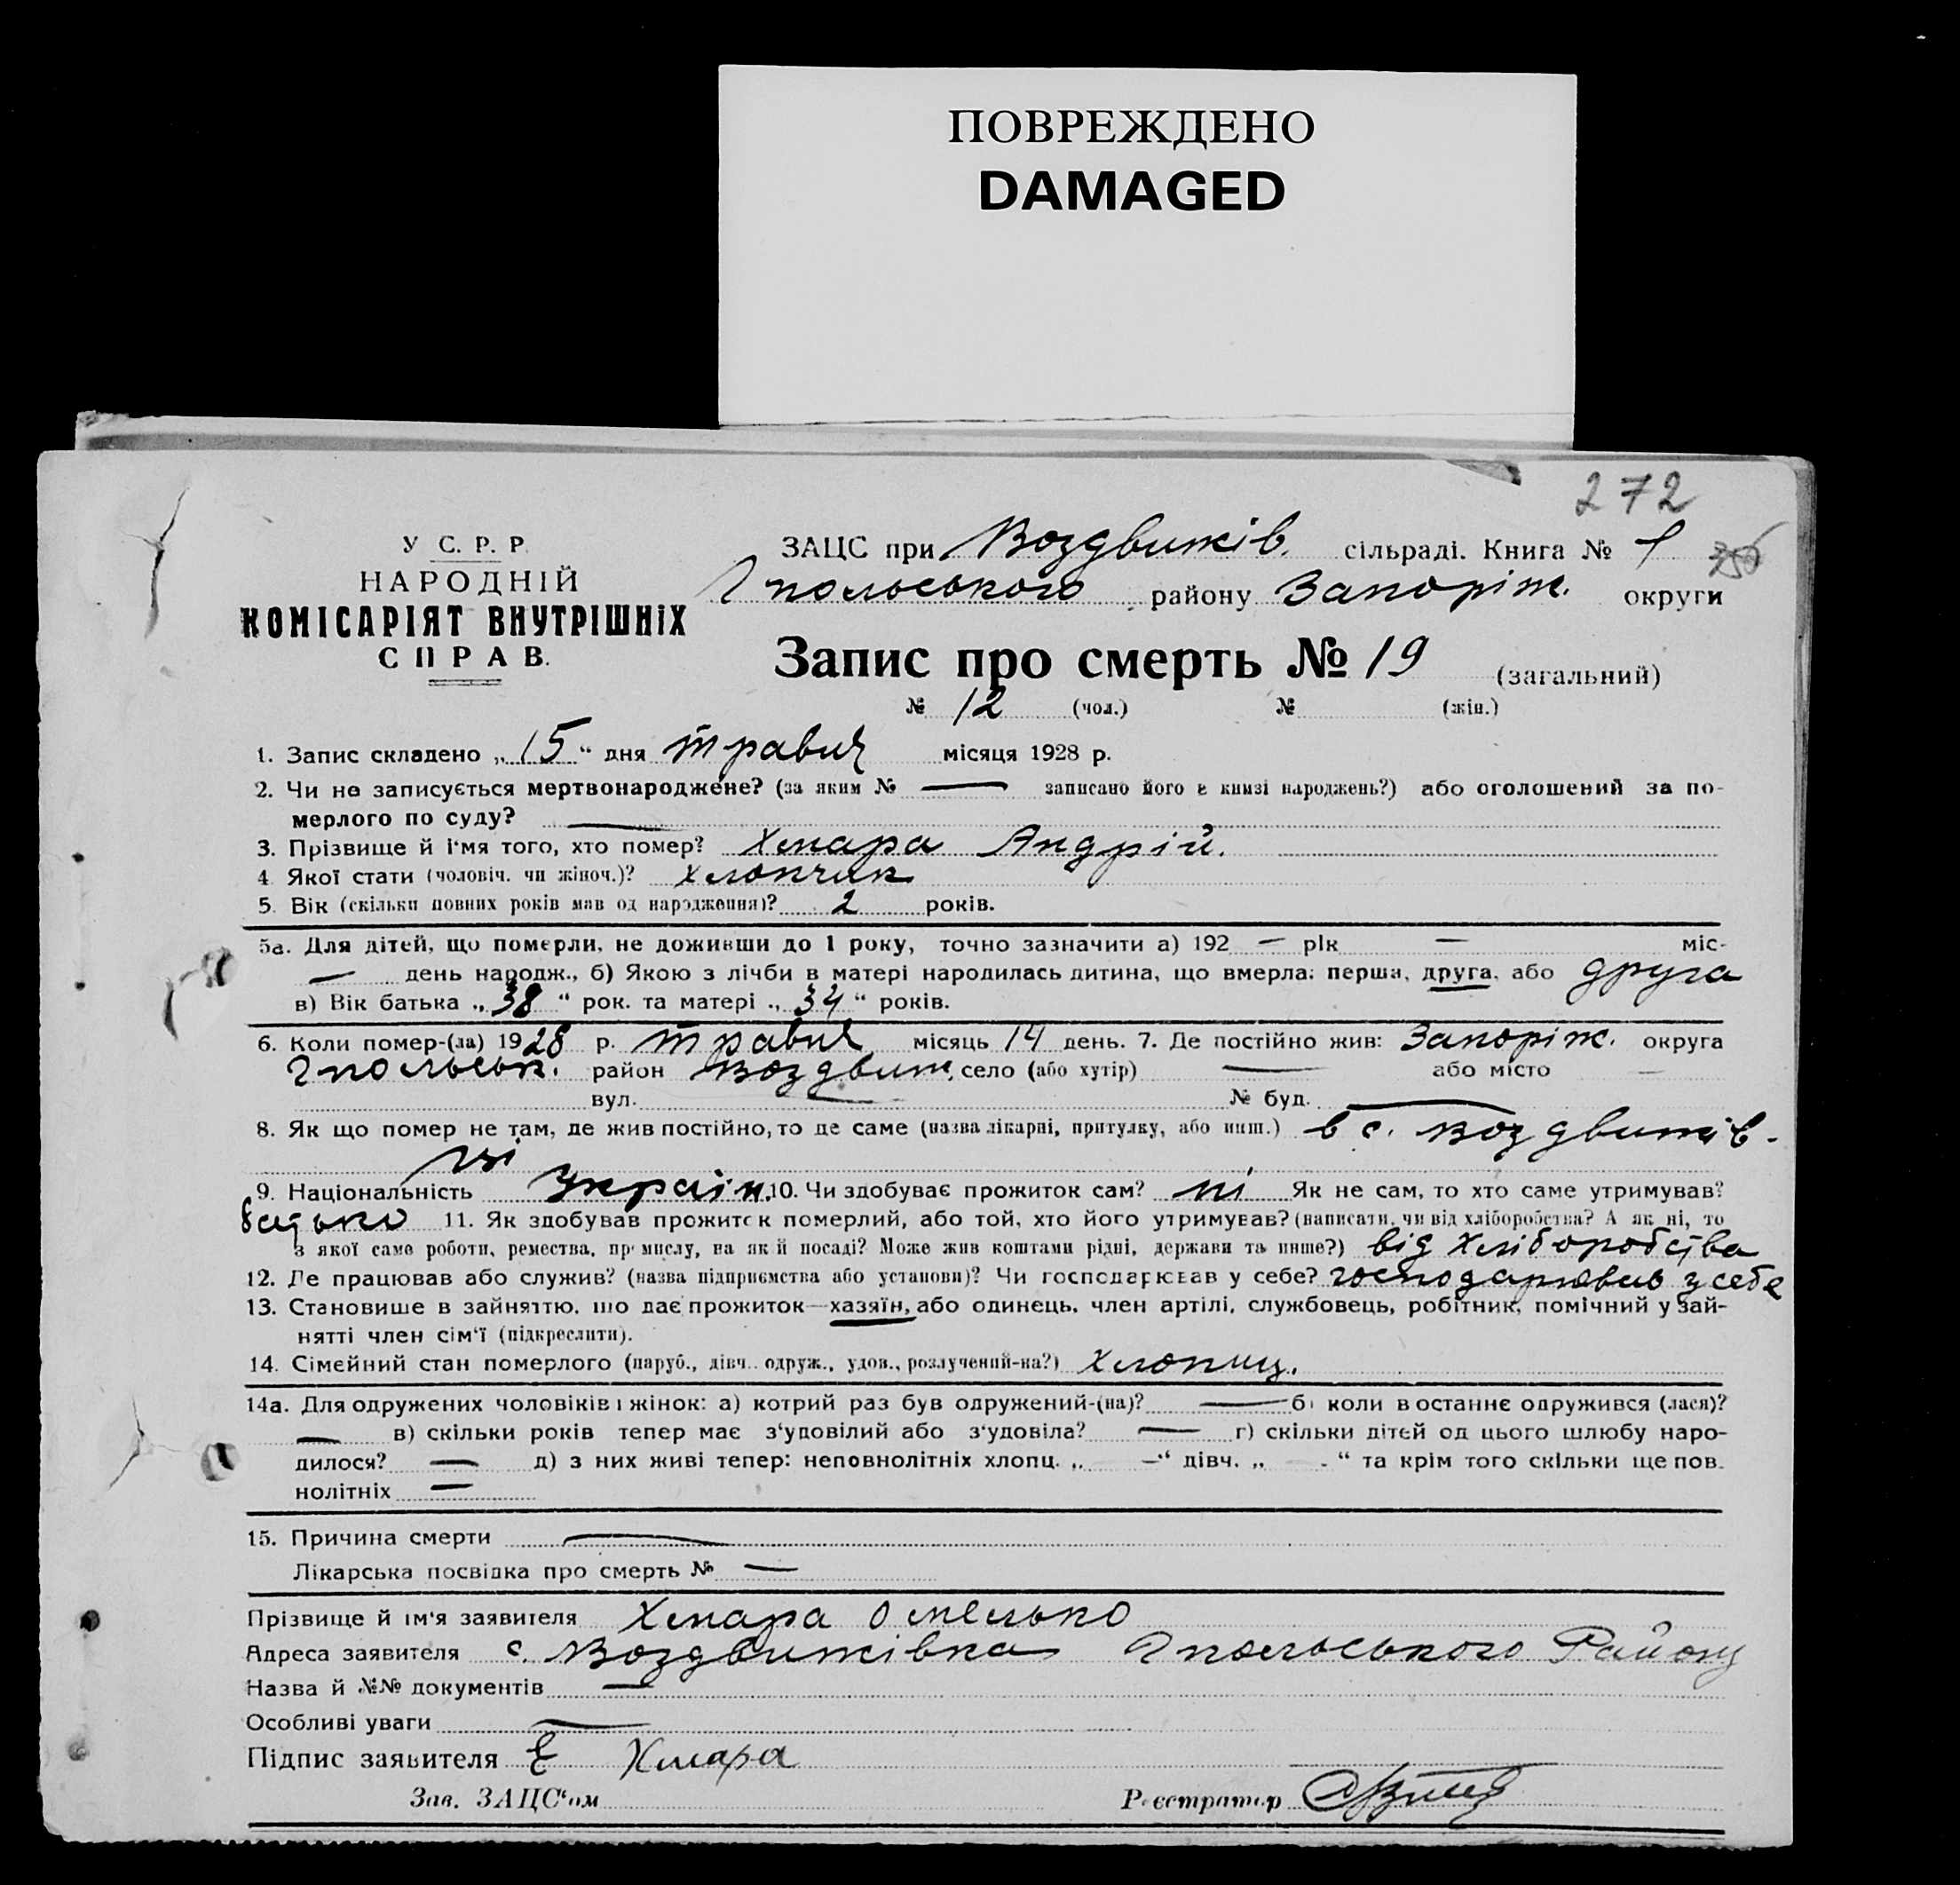 ПОВРЕЖДЕНО
DAMAGED
272
У С. Р. Р.
НАРОДНІЙ
КОМІСАРІЯТ ВНУТРІШНІХ
СПРАВ.
ЗАЦС при Воздвижів. сільраді. Книга № 1
Гпольського району Запоріж. округи
Запис про смерть № 19 (загальний)
№ 12 (чол.) № (жін.)
1. Запис складено „15“ дня травня місяця 1928 р.
2. Чи не записується мертвонароджене? (за яким № — записано його в книзі народжень?) або оголошений за по-
мерлого по суду? —
3. Прізвище й і'мя того, хто помер? Хмара Андрій.
4. Якої стати (чоловіч. чи жіноч.)? хлопчик
5. Вік (скільки повних років мав од народження)? 2 років.
5а. Для дітей, що померли, не доживши до 1 року, точно зазначити а) 192 — рік — міс-
— день народж., б) Якою з лічби в матері народилась дитина, що вмерла: перша, друга, або друга
в) Вік батька „38“ рок. та матері „34“ років.
6. Коли помер-(ла) 1928 р. травня місяць 14 день. 7. Де постійно жив: Запоріж. округа
Гпольськ. район Воздвиж. село (або хутір) — або місто —
вул. — № буд. —
8. Як що помер не там, де жив постійно, то де саме (назва лікарні, притулку, або инш.) в с. Воздвижів-
9. Національність Україн. 10. Чи здобуває прожиток сам? ні Як не сам, то хто саме утримував?
батько 11. Як здобував прожиток померлий, або той, хто його утримував? (написати, чи від хліборобства? А як ні, то
з якої саме роботи, ремества, промислу, на якій посаді? Може жив коштами рідні, держави та инше?) від Хліборобства
12. Де працював або служив? (назва підприємства або установи)? Чи господарював у себе? господарював у себе
13. Становище в зайняттю, що дає прожиток—хазяїн, або одинець, член артілі, службовець, робітник, помічний у зай-
нятті член сім'ї (підкреслити).
14. Сімейний стан померлого (паруб., дівч. одруж., удов., розлучений-на?) хлопиц.
14а. Для одружених чоловіків і жінок: а) котрий раз був одружений-(на)? — б) коли в останнє одружився (лася)?
— в) скільки років тепер має з'удовілий або з'удовіла? — г) скільки дітей од цього шлюбу наро-
дилося? — д) з них живі тепер: неповнолітніх хлопц. „—“ дівч. „-“ та крім того скільки ще пов-
нолітніх —
15. Причина смерти —
Лікарська посвідка про смерть № —
Прізвище й ім'я заявителя Хмара Омелько
Адреса заявителя с. Воздвижівка Гпольського Району
Назва й №№ документів —
Особливі уваги —
Підпис заявителя Е Хмара
Зав. ЗАЦС'ом Реєстратор